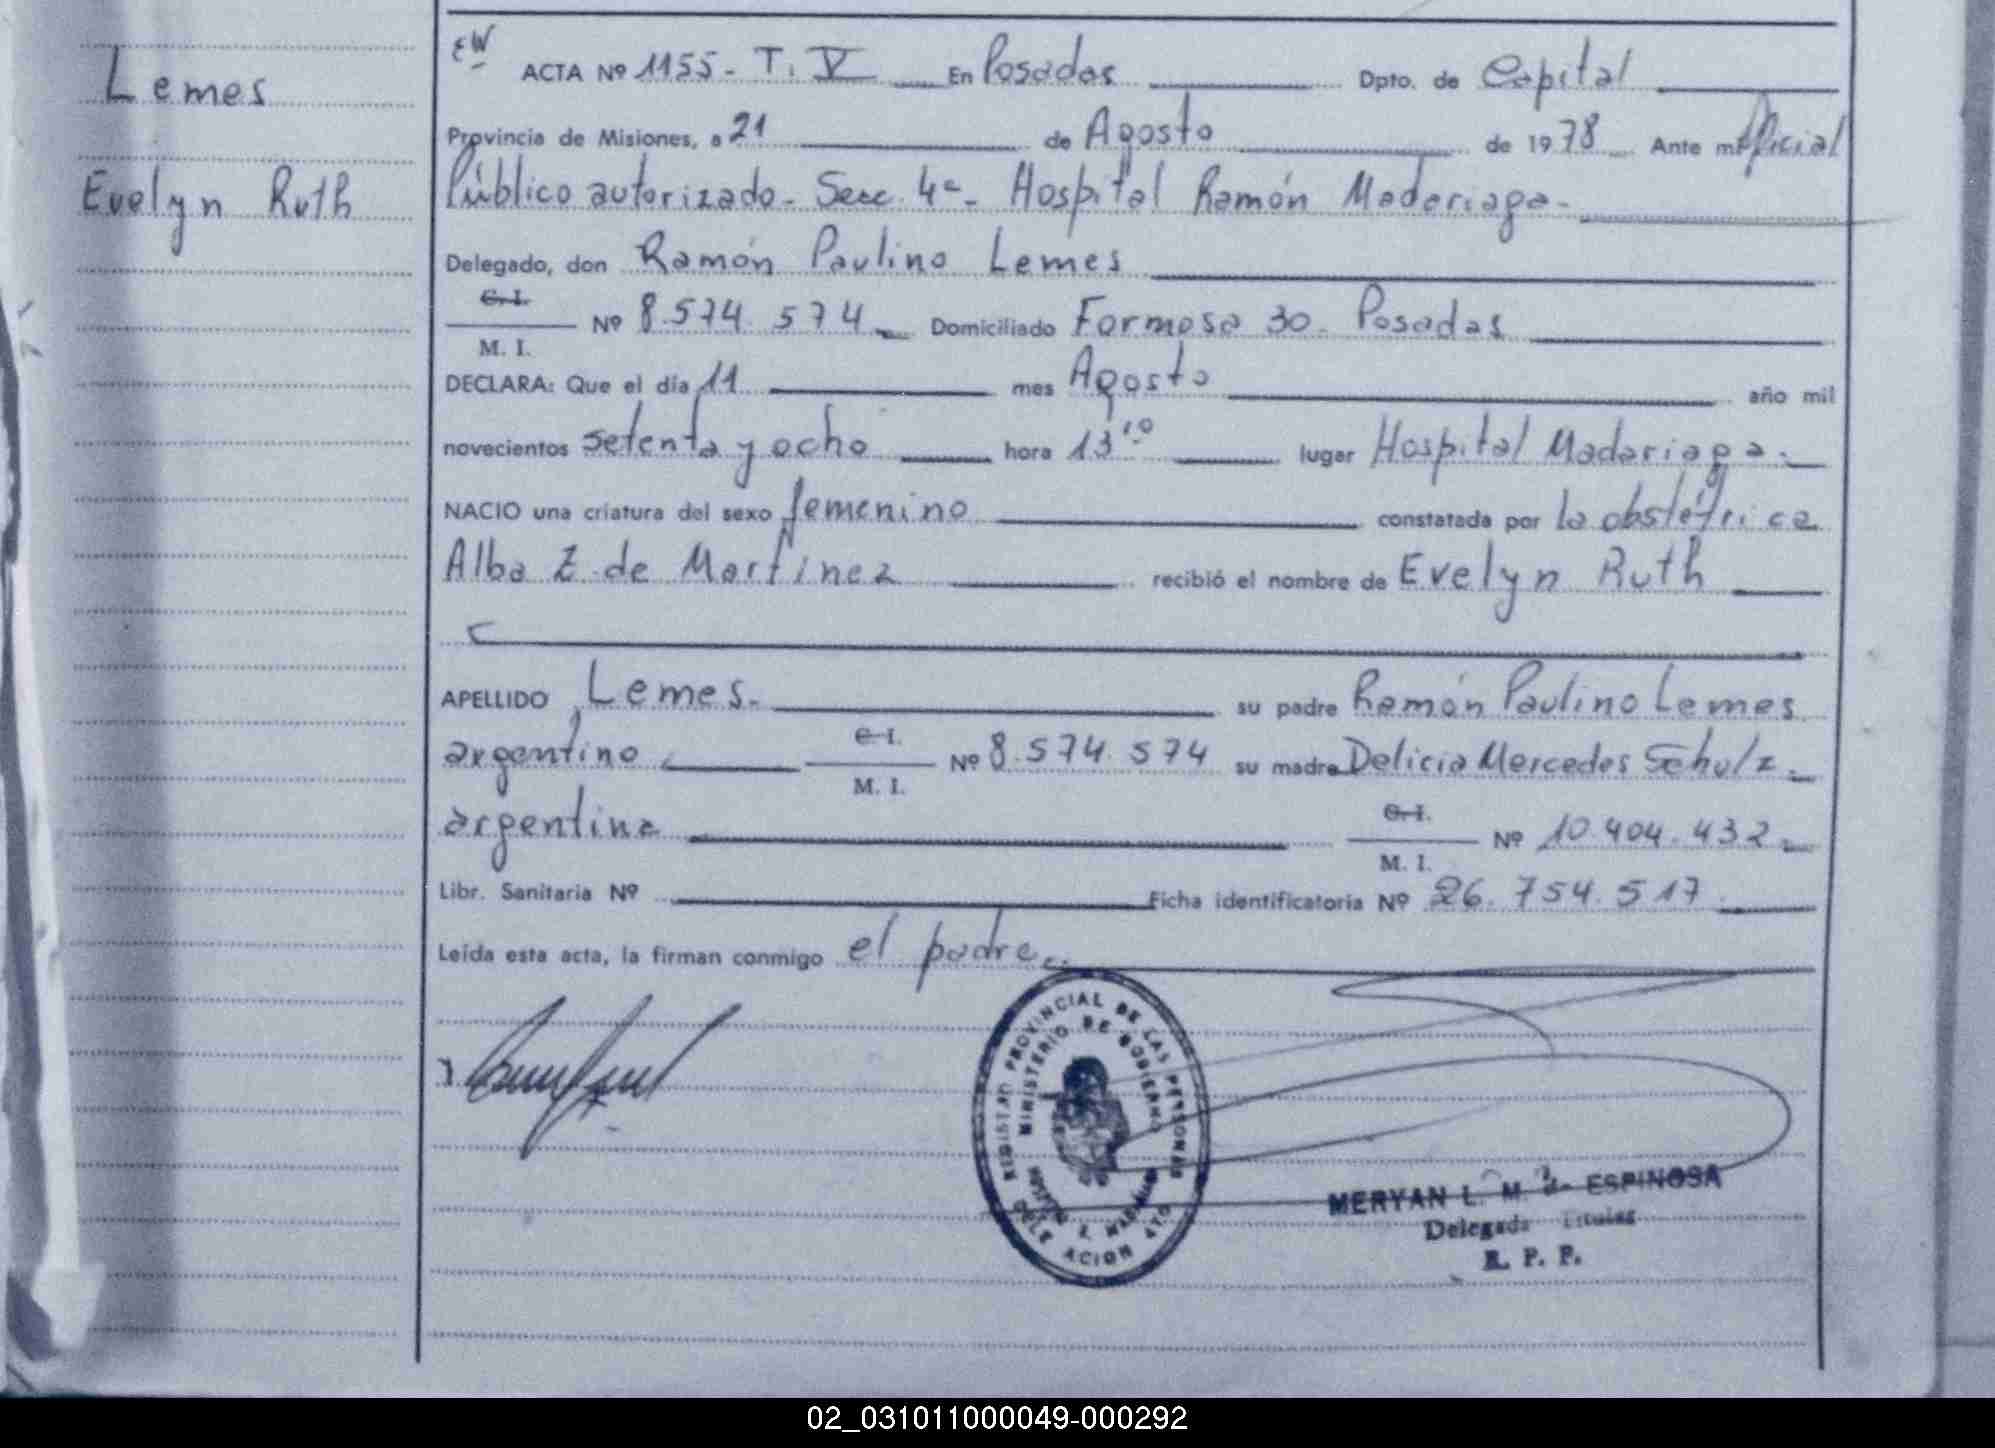 Lemes
Evelyn Ruth
EW
ACTA Nº 1155- T. V En Posadas Dpto. de Capital
Provincia de Misiones, a 21 de Agosto de 1978 Ante mí Oficial
Público autorizado- Secc. 4ª- Hospital Ramón Madariaga-
Delegado, don Ramón Paulino Lemes
C. I.
M. I. Nº 8.574.574 Domiciliado Formosa 30. Posadas
DECLARA: Que el día 11 mes Agosto año mil
novecientos setenta y ocho hora 13¹⁰ lugar Hospital Madariaga.
NACIO una criatura del sexo femenino constatada por la obstétrica
Alba Z. de Martinez recibió el nombre de Evelyn Ruth
APELLIDO Lemes.- su padre Ramón Paulino Lemes
argentino C. I. M. I. Nº 8.574.574 su madre Delicia Mercedes Schulz.
argentina C. I. M. I. Nº 10.404.432
Libr. Sanitaria Nº Ficha identificatoria Nº 26.754.517
Leída esta acta, la firman conmigo el padre.
REGISTRO PROVINCIAL DE LAS PERSONAS
MINISTERIO DE GOBIERNO
DELEGACION 4TO
MERYAN L. M. de ESPINOSA
Delegada Titular
R. P. P.
02_031011000049-000292